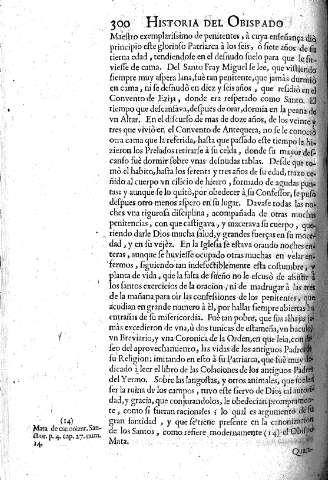 300 HISTORIA DEL OBISPADO
Maestro exemplarissimo de penitentes, à cuya enseñança diò
principio este glorioso Patriarca à los seis, ò siete años de su
tierna edad, tendiendose en el desnudo suelo para que le sir-
viesse de cama. Del Santo Fray Miguel se lee, que vistiendo
siempre muy aspera lana, fuè tan penitente, que jamàs durmiò
en cama, ni se desnudò en diez y seis años, que residiò en el
Convento de Ezija, donde era respetado como Santo. El
tiempo que descansava, despues de orar, dormia en la peana de
vn Altar. En el discurso de mas de doze años, de los veinte y
tres que viviò en el Convento de Antequera, no se le conociò
otra cama que la referida, hasta que passado este tiempo le hi-
zieron los Prelados retirarse à su celda, donde su mayor des-
canso fuè dormir sobre vnas desnudas tablas. Desde que to-
mò el habito, hasta los setenta y tres años de su edad, traxo ce-
ñido al cuerpo vn cilicio de hierro, formado de agudas pun-
tas y aunque se lo quitò, por obedecer à su Confessor, se puso
despues otro menos aspero en su lugar. Davase todas las no-
ches vna rigurosa disciplina, acompañada de otras muchas
penitencias, con que castigava, y macerava su cuerpo, que-
riendo darle Dios mucha salud, y grandes fuerças en su moce-
dad, y en su vejèz. En la Iglesia se estava orando noches en-
teras, aunque se huviesse ocupado otras muchas en velar en-
fermos, siguiendo tan indefectiblemente esta costumbre, y
planta de vida, que la falta de sueño no le escusò de assistir à
los santos exercicios de la oracion, ni de madrugar à las tres
de la mañana para oir las confessiones de los penitentes, que
acudian en grande numero à èl, por hallar siempre abiertas las
entrañas de su misericordia. Fuè tan pobre, que sus alhajas ja-
màs excedieron de vna, ù dos tunicas de estameña, vn baculo,
vn Breviario, y vna Coronica de la Orden, en que leìa, con de-
seo del aprovechamiento, las vidas de los antiguos Padres de
su Religion; imitando en esto à su Patriarca, que fuè muy de-
dicado à leer el libro de las Colaciones de los antiguos Padres
del Yermo. Sobre las langostas, y otros animales, que suelen
ser la ruina de los campos, tuvo este siervo de Dios tal autori-
dad, y gracia, que conjurandolos, le obedecian promptamen-
te, como si fueran racionales; lo qual es argumento de su
gran santidad, y que se tiene presente en la canonizacion
de los Santos, como refiere modernamente (14) el Obispo
Mata.
(14)
Mata de canonizat. San-
ctor. p. 4. cap. 27. num.
14.
Quan-